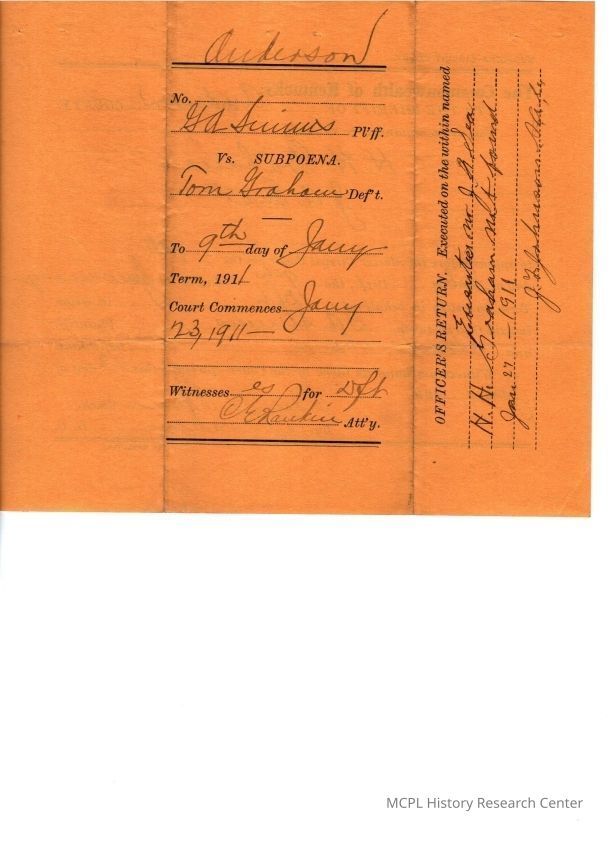 Anderson
No.
GA Simms Pl'ff.
Vs. SUBPOENA.
Tom Graham Def't.
To 9th day of Jany
Term, 1911
Court Commences Jany
23, 1911
Witnesses es for Dft
CE Rankin Att'y.
OFFICER'S RETURN. Executed on the within named
on J. A. Lea
H. H. Graham not found
Jan 27 - 1911
Johnson
MCPL History Research Center